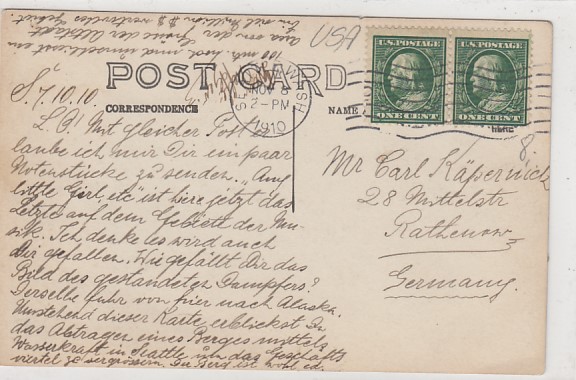 USA
POST CARD
CORRESPONDENCE
NAME
U.S. POSTAGE
ONE CENT
U.S. POSTAGE
ONE CENT
SEATTLE WASH
NOV 8
2-PM
1910
S. 7.10.10.
L. P.! Mit gleicher Post
laube ich mir Dir ein paar
Notenstücke zu senden. "
little Girl, etc" ist hier jetzt das
Letzte auf dem Gebiett der Mu-
sik. Ich denke es wird auch
dir gefallen. Wie gefällt Dir das
Bild des gestrandeten Dampfers?
Derselbe fuhr von hier nach Alaska.
Umstehend dieser Karte erblickst Du
das Abtragen eines Berges mittels
Wasserkraft in Seattle um das Geschäfts
viertel zu vergrössern. Der Berg ist wohl
100 mtr. hoch und umschliesst ein
Area von der Grösse der Altstadt
Mr Carl Käpernick
28 Mittelstr
Rathenow
Germany.